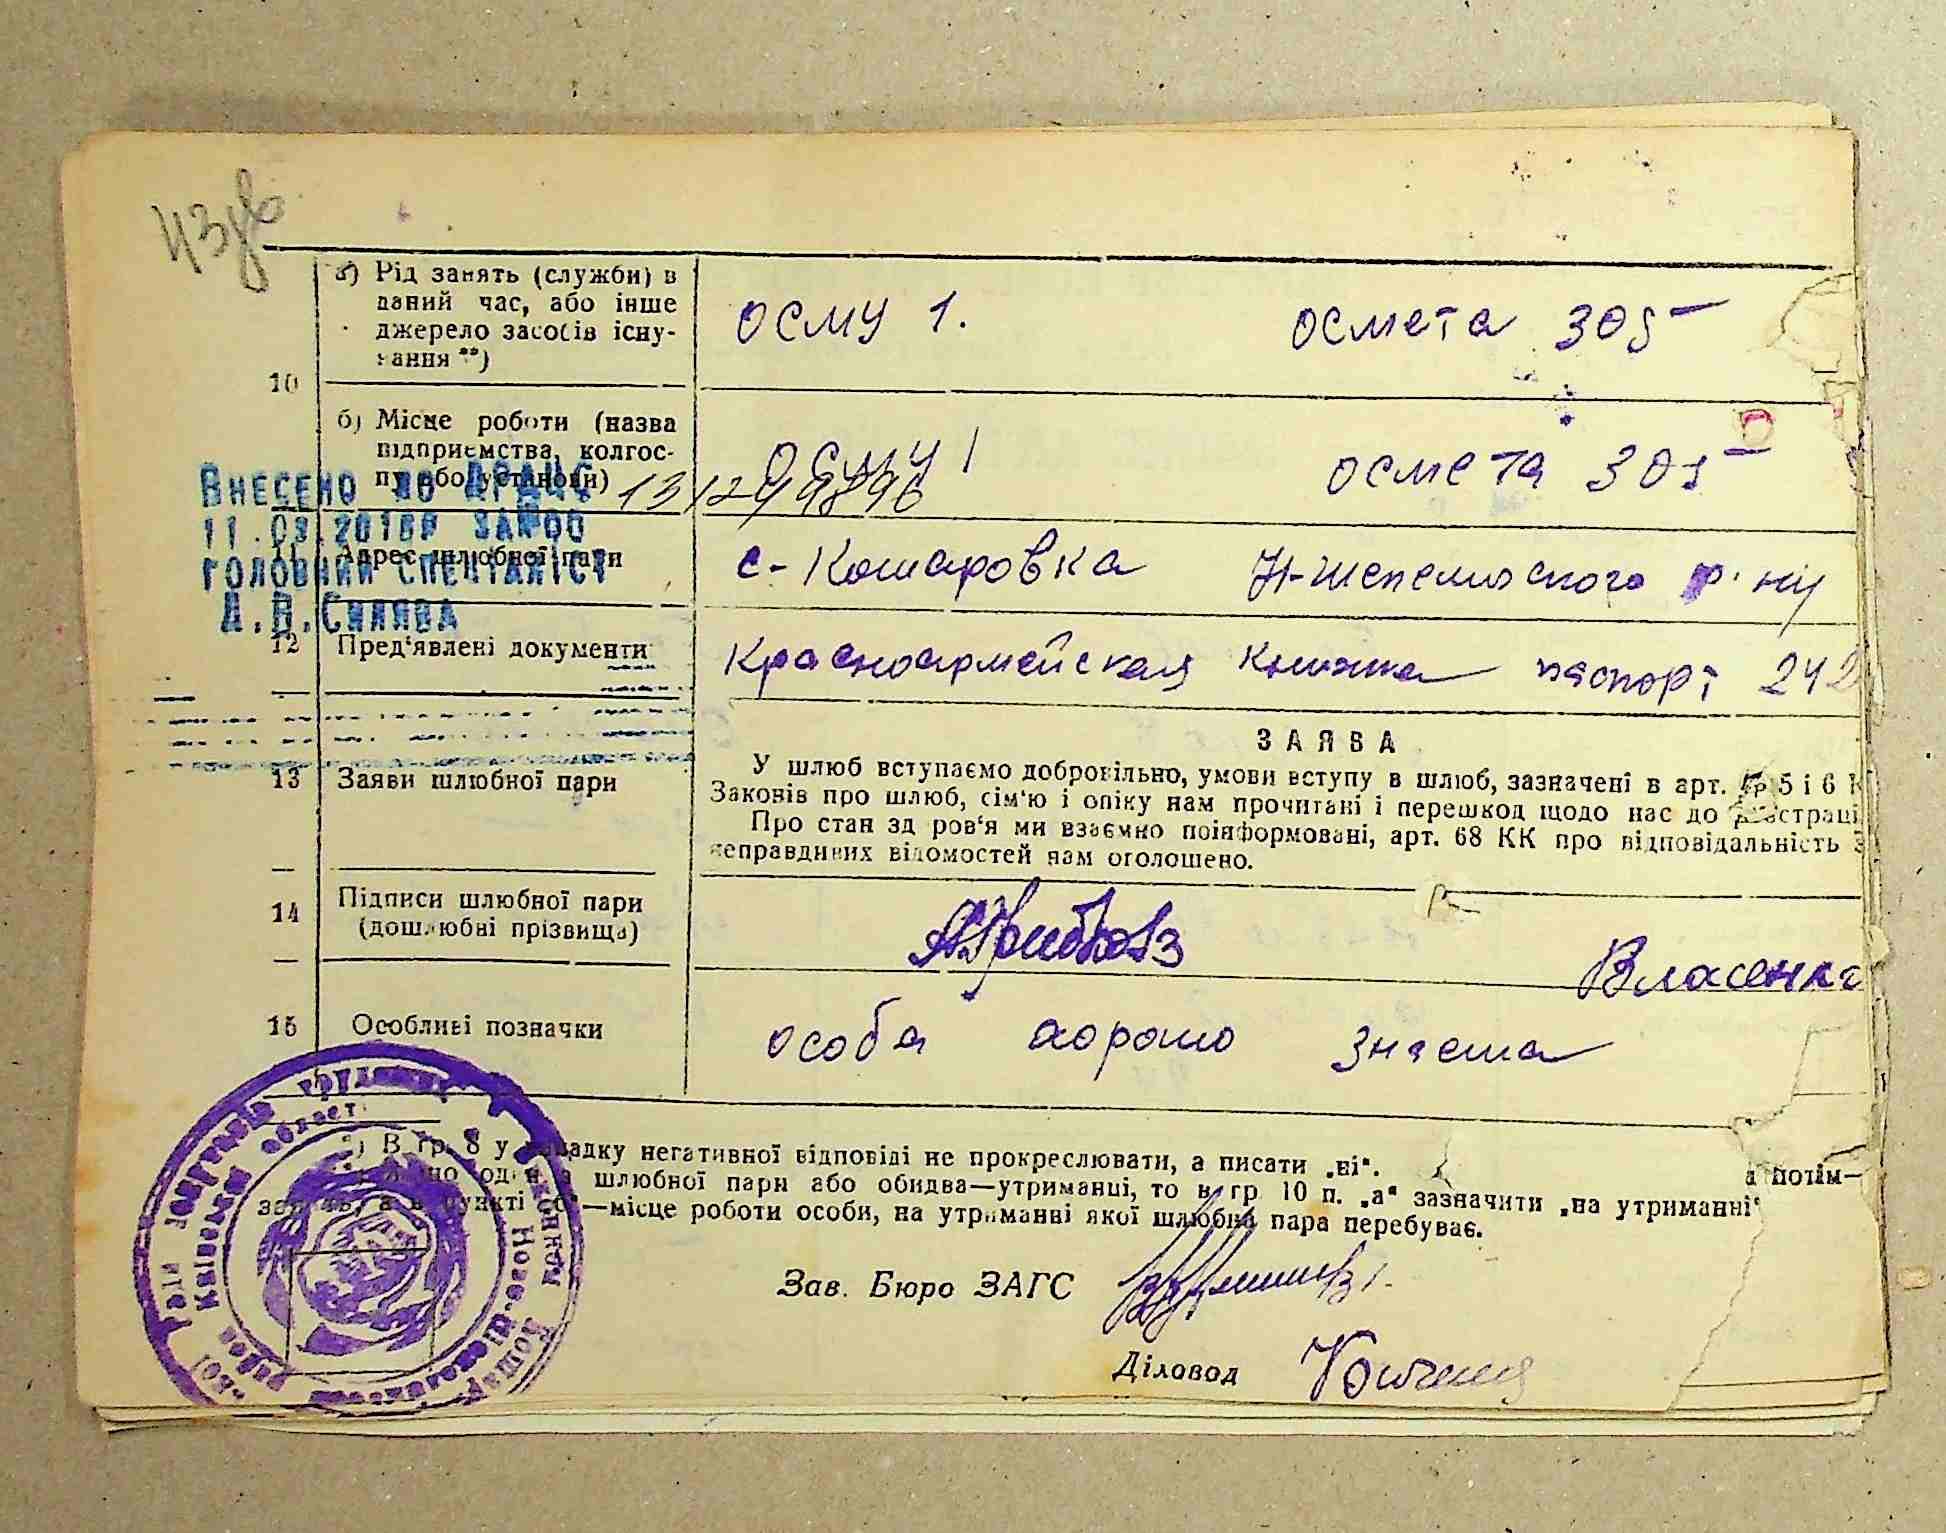 43зв
10
а) Рід занять (служби) в
даний час, або інше
джерело засобів існу-
вання **)
ОСМУ 1.
осмета 305
б) Місце роботи (назва
підприємства, колгос-
пу або установи)
ОСМУ 1
осмета 305
Внесено до ДРАЦС
131299896
11.03.2016р
головний спеціаліст
11 Адрес шлюбної пари
с- Кошаровка Н-Шепеличского р-ну
12 Пред'явлені документи
Красноармейская Книжка паспорт 242
ЗАЯВА
13 Заяви шлюбної пари
У шлюб вступаємо добровільно, умови вступу в шлюб, зазначені в арт. 5 і 6 К
Законів про шлюб, сім'ю і опіку нам прочитані і перешкод щодо нас до реєстраці
Про стан здоров'я ми взаємно поінформовані, арт. 68 КК про відповідальність з
неправдивих відомостей нам оголошено.
14 Підписи шлюбної пари
(дошлюбні прізвища)
Власенко
15 Особливі позначки
особа хорошо знаема
*) В гр. 8 у випадку негативної відповіді не прокреслювати, а писати „ні“.
шлюбної пари або обидва—утриманці, то в гр 10 п. „а“ зазначити „на утриманні“
а потім—
пункті „б“—місце роботи особи, на утриманні якої шлюбна пара перебуває.
Зав. Бюро ЗАГС
Діловод